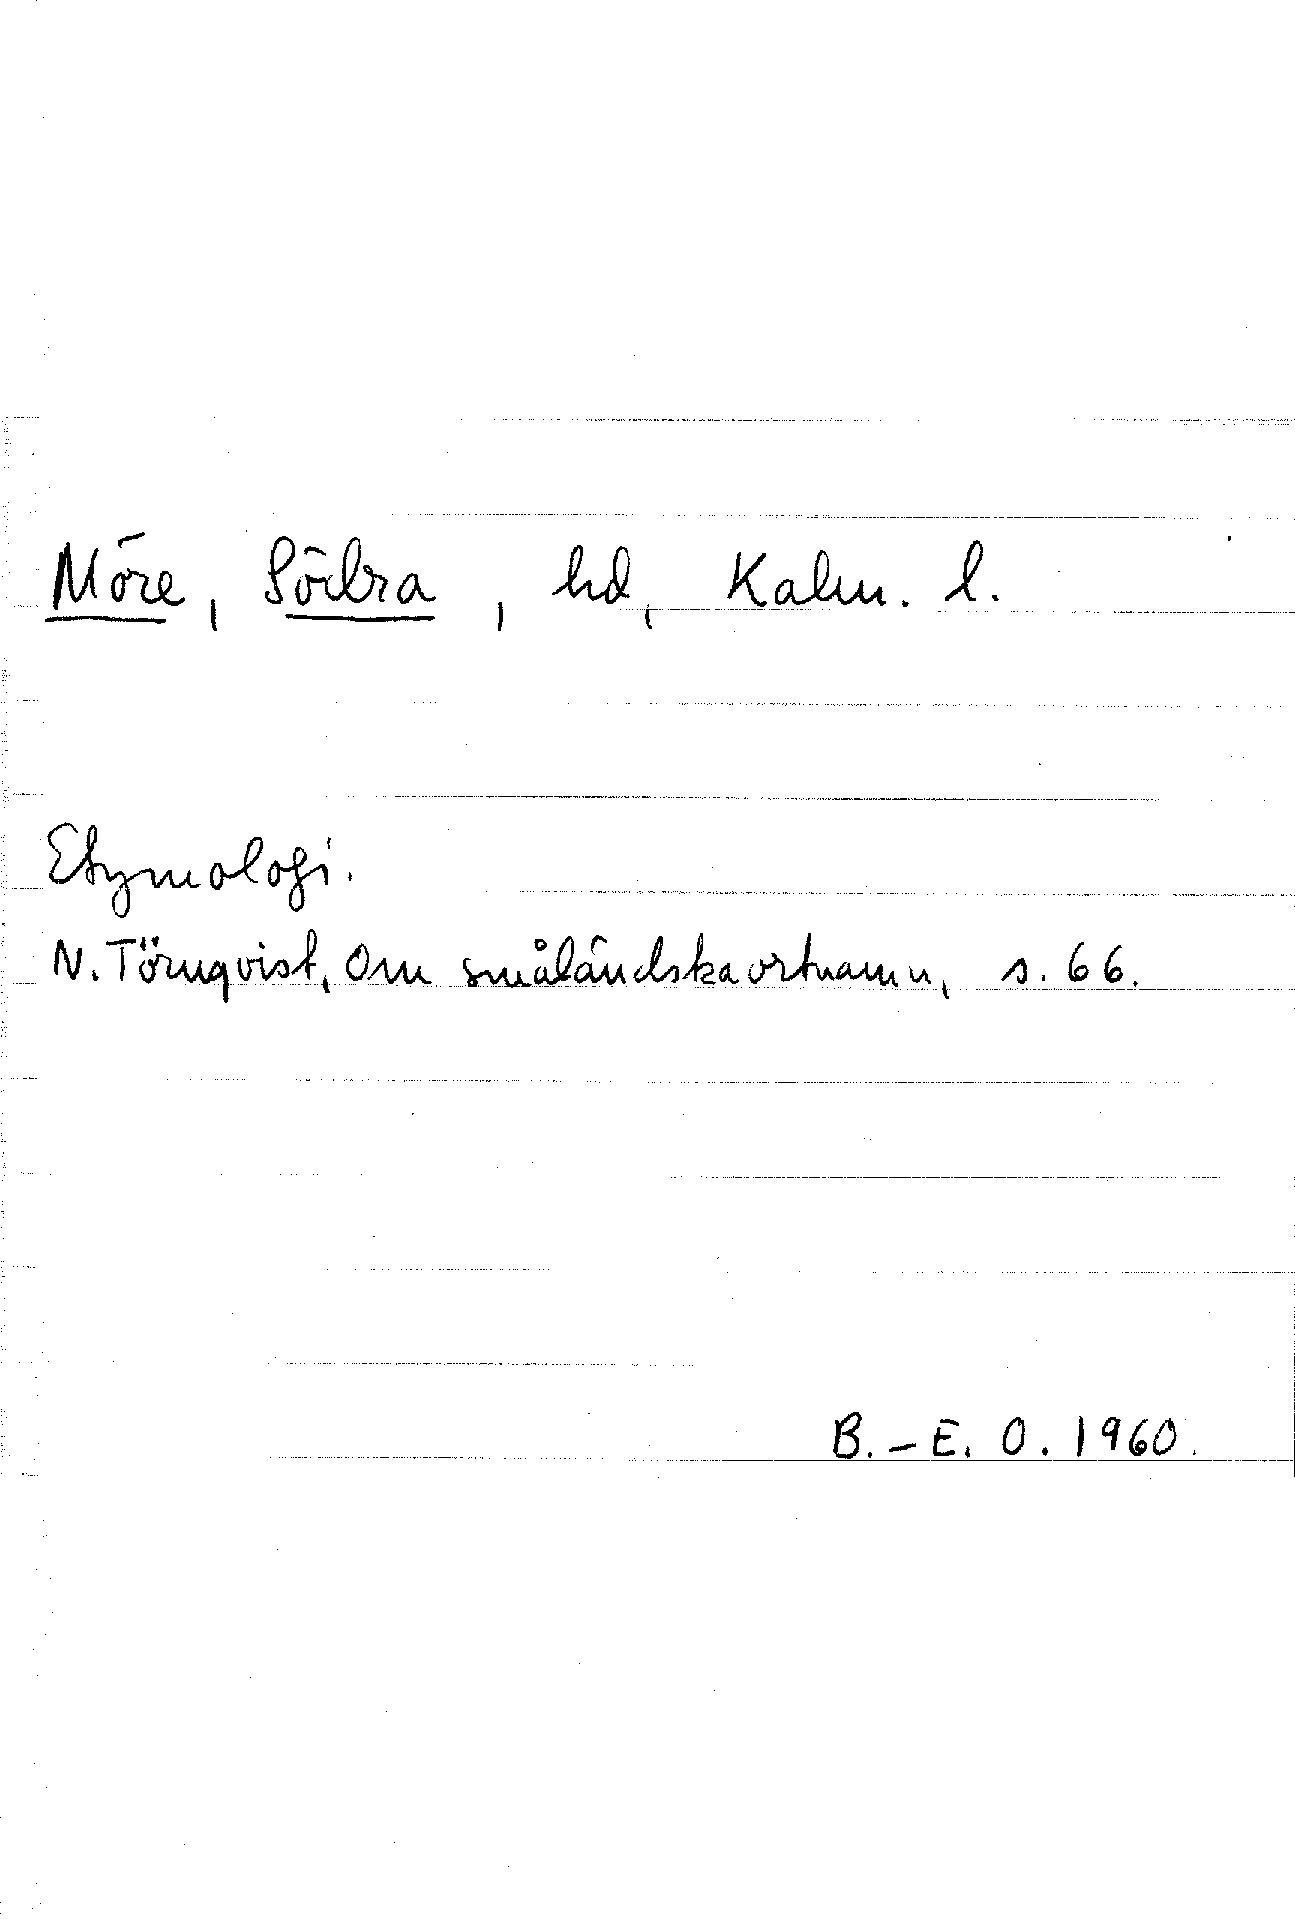 Möre, Södra, hd, Kalm. l.
Etymologi.
N. Törnqvist, Om småländska ortnamn, s. 66.
B.-E. O. 1960.